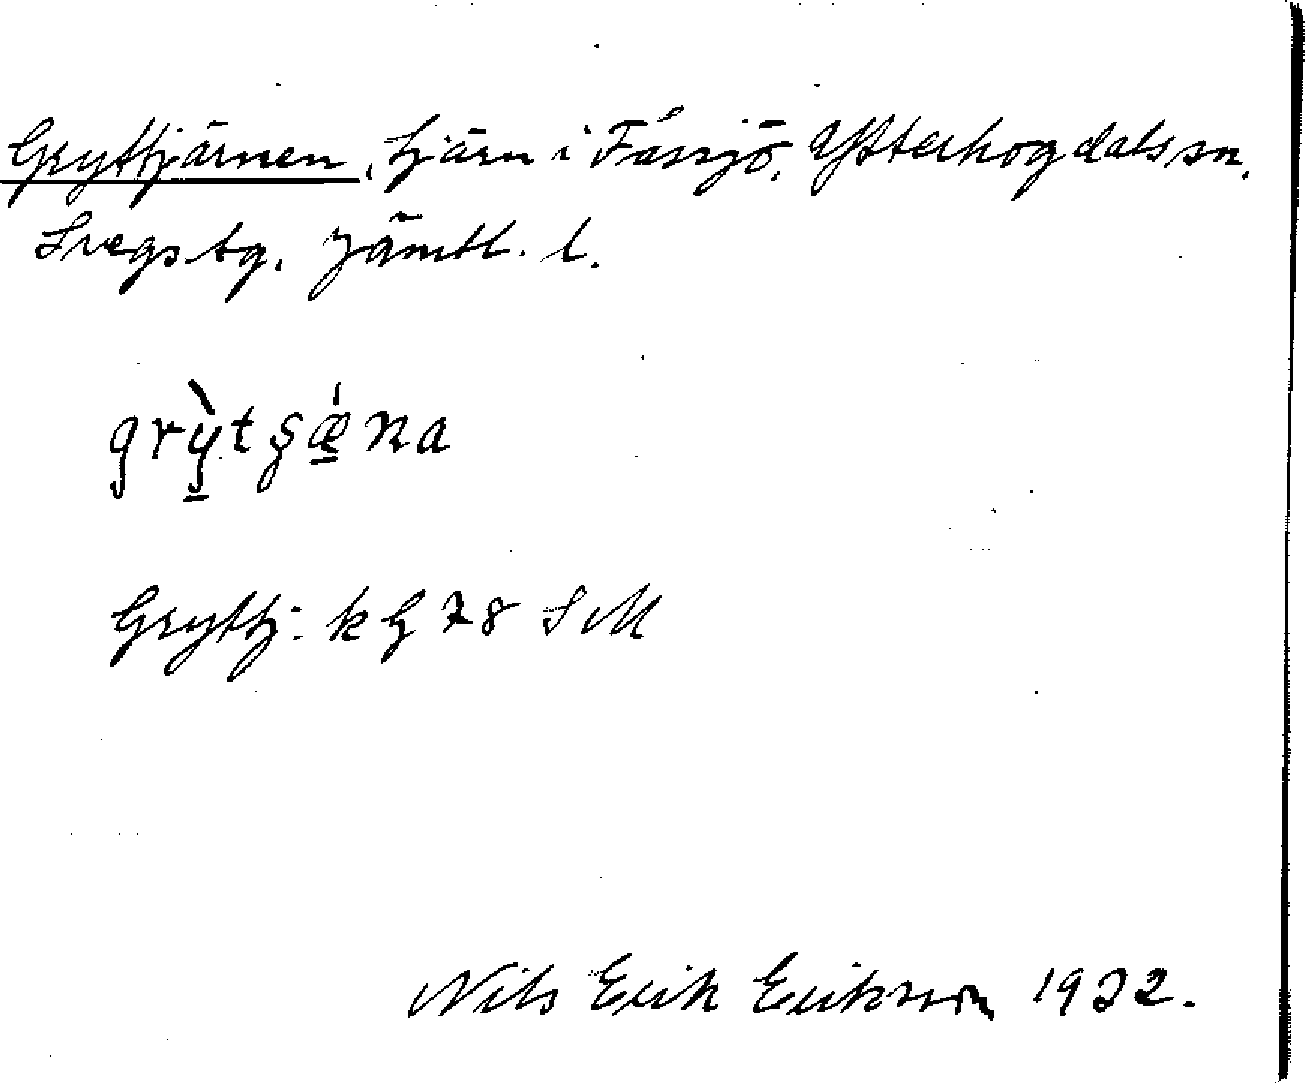 Gryttjärnen, tjärn i Fåssjö, Ytterhogdals sn.
Svegs tg. Jämtl. l.
grỳ̠tʂǽ̠ɳa
Gryttj: k G 78 SM
Nils Erik Erikson 1932.